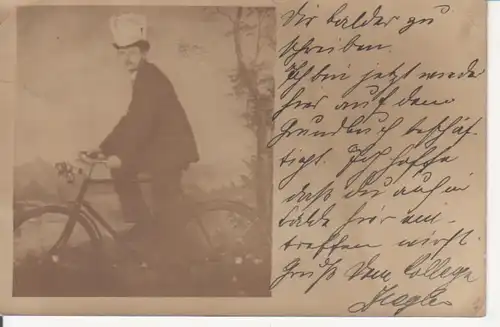 Dir balder zu
schreiben.
Ich bin jetzt wieder
hier auf dem
Grundbuch beschäf-
tigt. Ich hoffe
daß du auch in
bälde hier ein-
treffen wirst.
Gruß vom College